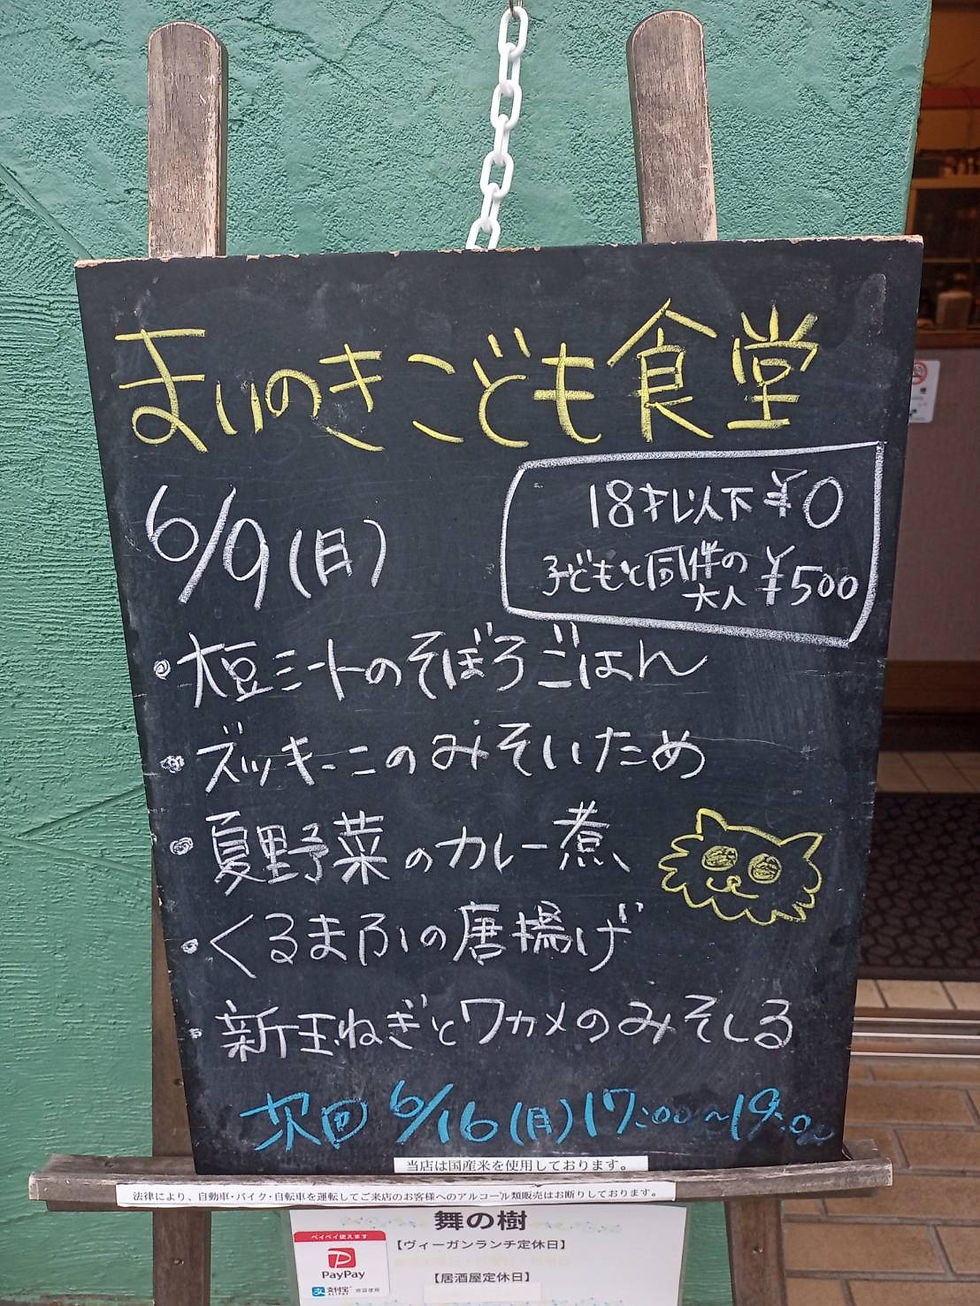 まいのきこども食堂
6/9(月)
18才以下 ¥0
子どもと同伴の大人 ¥500
・大豆ミートのそぼろごはん
・ズッキーニのみそいため
・夏野菜のカレー煮
・くるまふの唐揚げ
・新玉ねぎとワカメのみそしる
次回 6/16(月)17:00~19:00
当店は国産米を使用しております。
法律により、自動車・バイク・自転車を運転してご来店のお客様へのアルコール類販売はお断りしております。
舞の樹
ペイペイ使えます
【ヴィーガンランチ定休日】
PayPay
【居酒屋定休日】
支付宝